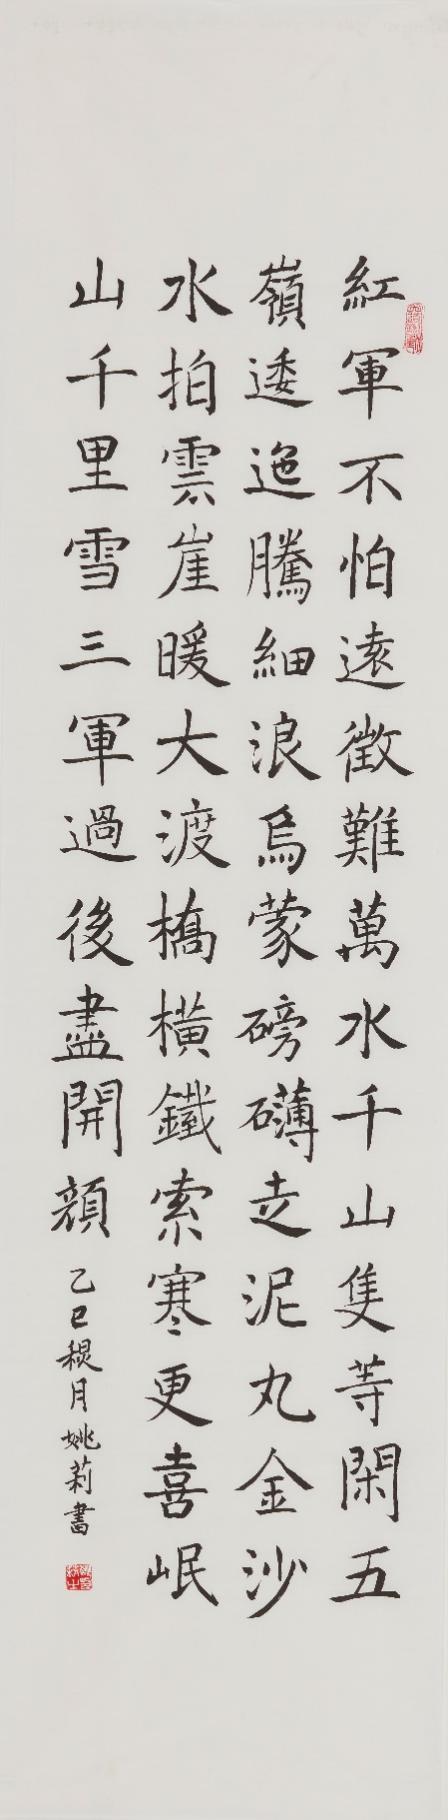 紅軍不怕遠徵難萬水千山隻等閑五
嶺逶迤騰細浪烏蒙磅礴走泥丸金沙
水拍雲崖暖大渡橋橫鐵索寒更喜岷
山千里雪三軍過後盡開顏
乙巳月姚莉書